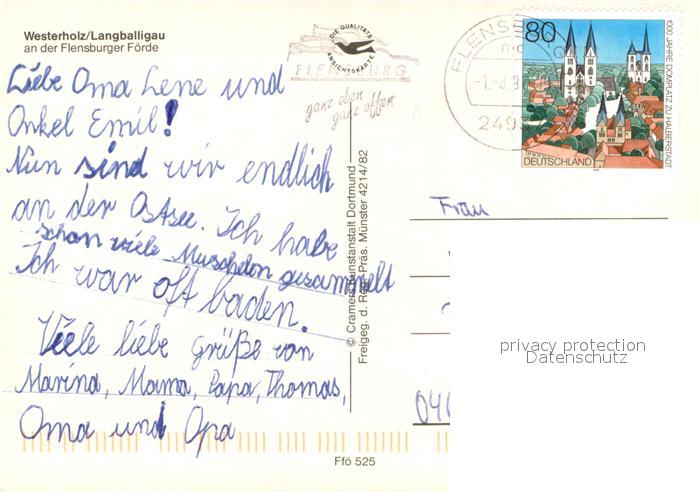 Westerholz/Langballigau
an der Flensburger Förde
Liebe Oma Lene und
Onkel Emil!
Nun sind wir endlich
an der Ostsee. Ich habe
schon viele Muscheln gesammelt
Ich war oft baden.
Viele liebe Grüße von
Marina, Mama, Papa, Thomas,
Oma und Opa
DIE QUALITÄTS
ANSICHTSKARTE
FLENSBURG
ganz oben
ganz offen
FLENSB
-1.-8.9
2495
80
1000 JAHRE DOMPLATZ ZU HALBERSTADT
DEUTSCHLAND
© Cramers Kunstanstalt Dortmund
Freigeg. d. Reg. Präs. Münster 4214/82
Frau
privacy protection
Datenschutz
Ffö 525